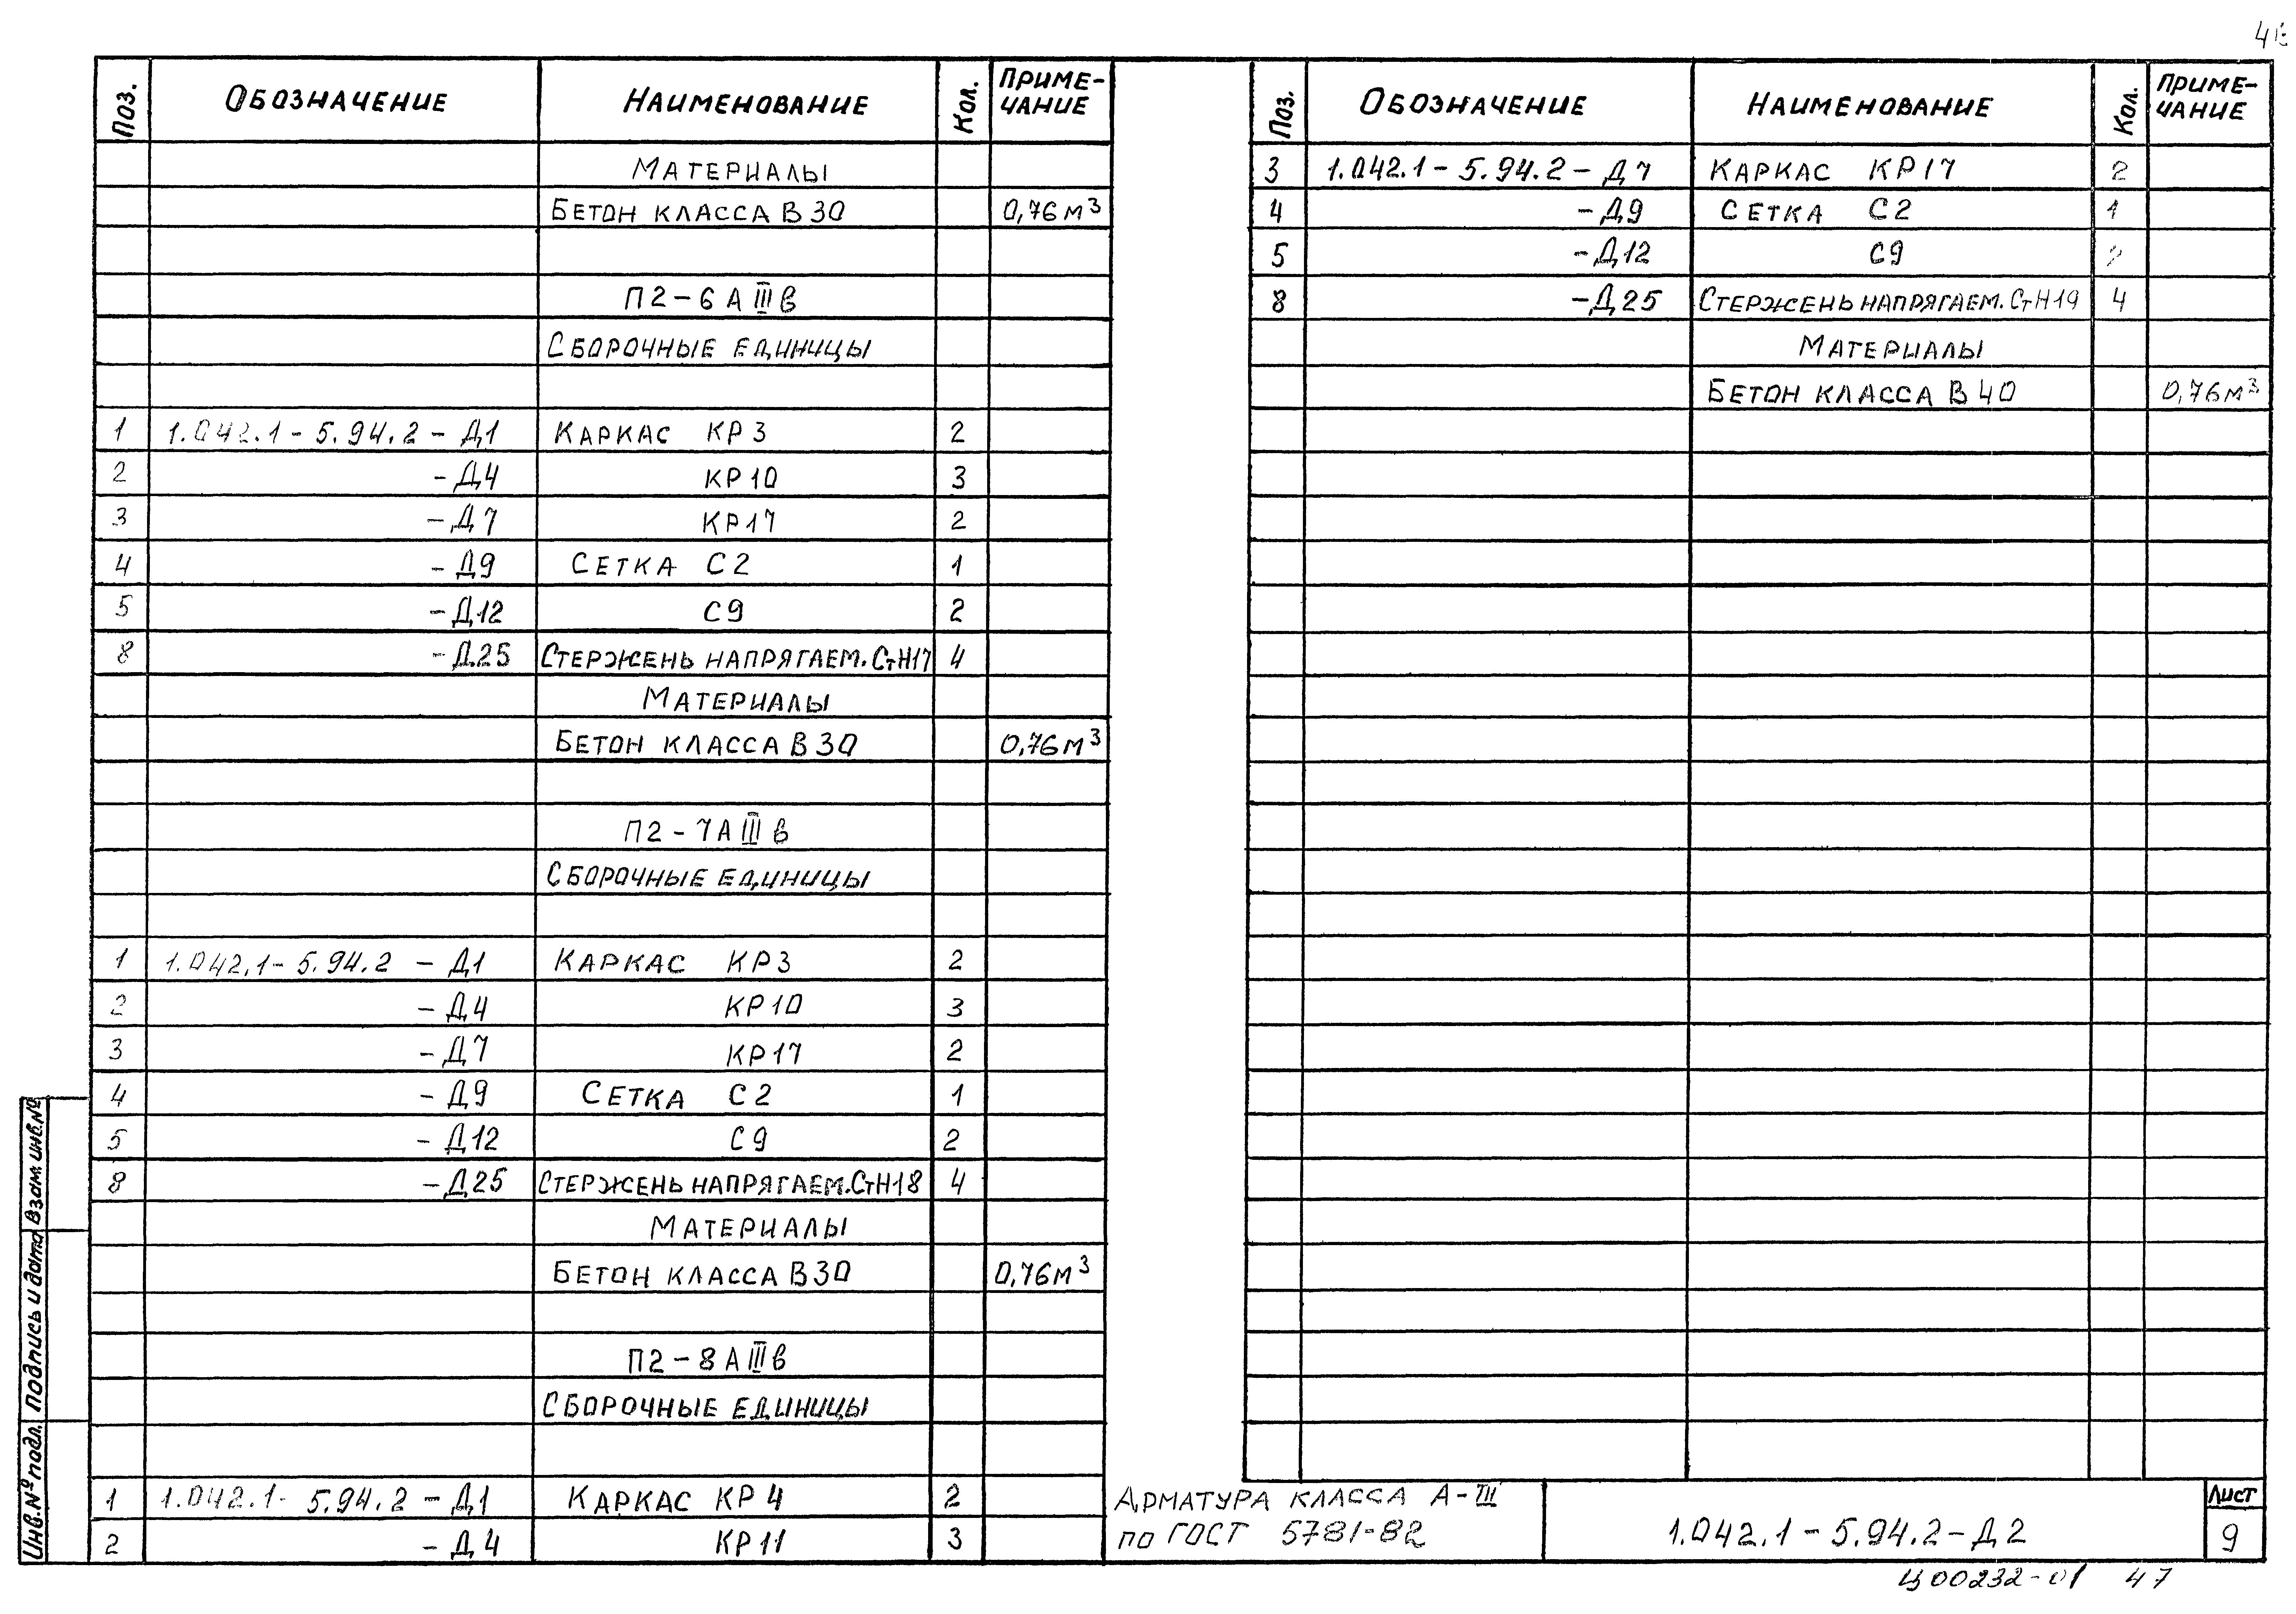 Поз. Обозначение Наименование Кол. Приме-
чание
Материалы
Бетон класса В30 0,76м³
П2-6АIIIв
Сборочные единицы
1 1.042.1-5.94.2-Д1 Каркас КР3 2
2 -Д4 КР10 3
3 -Д7 КР17 2
4 -Д9 Сетка С2 1
5 -Д12 С9 2
8 -Д25 Стержень напрягаем.СтН17 4
Материалы
Бетон класса В30 0,76м³
П2-7АIIIв
Сборочные единицы
1 1.042.1-5.94.2-Д1 Каркас КР3 2
2 -Д4 КР10 3
3 -Д7 КР17 2
4 -Д9 Сетка С2 1
5 -Д12 С9 2
8 -Д25 Стержень напрягаем.СтН18 4
Материалы
Бетон класса В30 0,76м³
П2-8АIIIв
Сборочные единицы
1 1.042.1-5.94.2-Д1 Каркас КР4 2
2 -Д4 КР11 3
Поз. Обозначение Наименование Кол. Приме-
чание
3 1.042.1-5.94.2-Д7 Каркас КР17 2
4 -Д9 Сетка С2 1
5 -Д12 С9 2
8 -Д25 Стержень напрягаем.СтН19 4
Материалы
Бетон класса В40 0,76м³
Арматура класса А-III
по ГОСТ 5781-82
1.042.1-5.94.2-Д2
Лист
9
Ц00232-01 47
Инв.№ подл. Подпись и дата Взам.инв.№